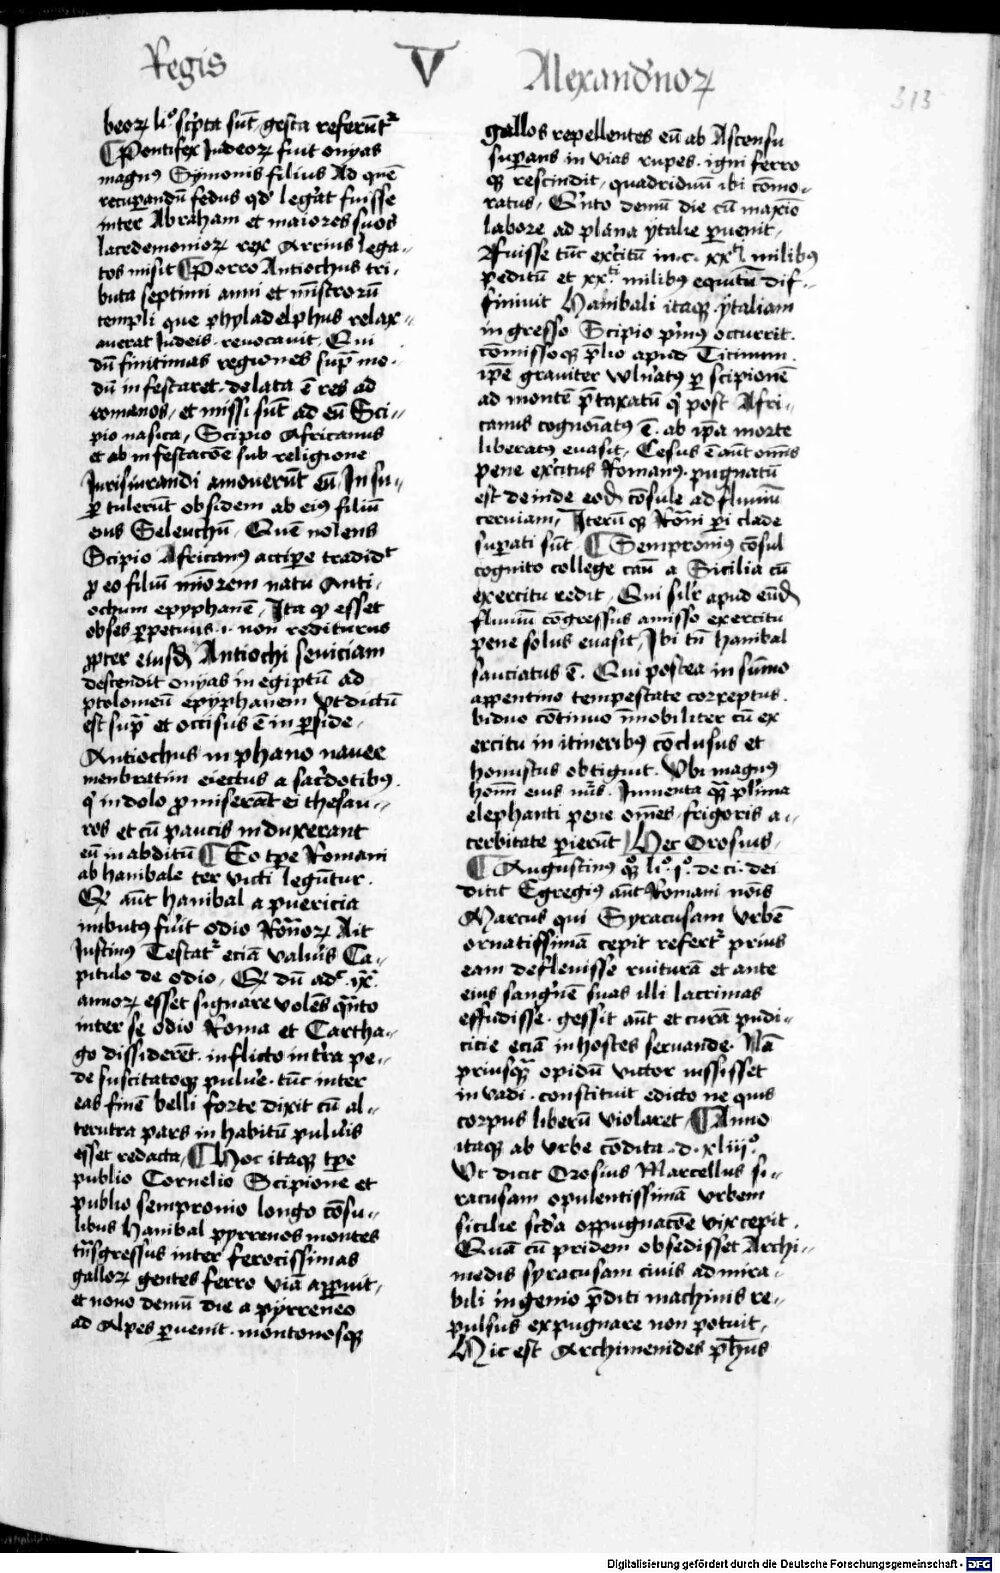 Regis V Alexandrinoꝝ
313
beoꝝ liº scͥpta sūt gesta referūtᷣ
¶ Pontifex Judeoꝝ fuit onyas
magnꝰ Symonis filius Ad quē
recuperandū fedus qd̓ leg̓at fuisse
inter Abraham et maiores suos
lacedemonioꝝ rex Arrius lega-
tos misit ¶ Porro Antiochus tri-
buta septimi anni et mīstrorū
templi que phyladelphus relax-
auerat Judeis reuocauit. Qui
dū finitimas regiones supͣ mo-
dū infestaret delata ē res ad
romanos, et missi sūt ad eū Sci-
pio nasica, Scipio Africanus
et ab infestacōe sub religione
Jurisiurandi amouerūt eū, Insu-
ꝑ tulerūt obsidem ab eiꝰ filiū
eius Seleuchū. Quē nolens
Scipio Africanꝰ accipe tradidᵗ
ꝓ eo filiū mīorem natu Anti-
ochum epyphanē, Ita qꝫ esset
obses ꝑpetuus .i. non rediturus
ꝓpter eiusdē Antiochi seuiciam
descendit onyas in egiptū ad
ptolomeū epyphanem Vt dictū
est supͣ et occisus ē in ꝑside.
Antiochus in phano nauee
menbratim eiectus a sac̓dotibꝰ.
qͥ in dolo ꝓmiserāt ei thesau-
ros et cū paucis induxerant
eū in abditū ¶ Eo tꝑe Romani
ab hanibale ter victi legūtur.
Qͥ aūt hanibal a puericia
imbutꝰ fuit odio Romoꝝ Ait
Justinꝰ Testatᷣ eciā Valiꝰ Ca-
pitulo de odio. Qͥ dū adᶜ .ix.
annoꝝ esset signare volēs quāto
inter se odio Roma et Cartha-
go dissiderēt. inflicto in tr̄a pe-
de suscitatoqꝫ pulue. tūc inter
eas finē belli forte dixit cū al-
terutra pars in habitū puluis
esset redacta, ¶ Hoc itaqꝫ tꝑe
publio Cornelio Scipione et
publio sempronio longo cōsu-
libus Hanibal pyrrenos montes
trāsgressus inter ferocissimas
galloꝝ gentes ferro viā apꝑuit,
et nono demū die a pyrreneo
ad Alpes ꝑuenit. montonosqꝫ
gallos repellentes eū ab Ascensu
suꝑans in vias rupes. igni ferro
qꝫ rescindit, quadriduū ibi cōmo-
ratus, Qͥnto demū die cū maxīo
labore ad plana ytalie ꝑuenit,
Fuisse tūc exc̓itū in .c. xxᵗⁱ milibꝰ
peditū et xxᵗⁱ milibꝰ equitū dif-
finiuit Hanibali itaqꝫ ytaliam
ingresso Scipio pͥmꝰ occurrit.
cōmissoqꝫ p̄lio apud Ticinum.
ip̄e grauiter wln̓atꝰ ꝑ scipionē
ad montē p̄taxatū qͥ post Afri-
canus cognoīatꝰ ē. ab ip̄a morte
liberatꝰ euasit, Cesus ē aūt omīs
pene exc̓itus Romanꝰ. pugnatū
est deinde eodē cōsule ad fluuiū
terviam, Iterū qꝫ Romi pͥ clade
suꝑati sūt, ¶ Semproniꝰ cōsul
cognito college casū a Sicilia cū
exercitu redit, Qui silr̄ apud eūdē
fluuiū cōgressus amisso exercitu
pene solus euasit, Ibi tn̄ hanibal
sauciatus ē. Qui postea in sūmo
appentino tempestate correptus.
biduo cōtinuo īmobiliter cū ex
ercitu in itineribꝰ cōclusus et
honustus obtiguit. Vbi magnꝰ
homī eius nūs. Jumenta quā pl̓ima
elephanti pene om̄es frigoris a-
cerbitate ꝑierūt, Hec Orosius.
¶ Augustinus qͦqꝫ liº .1º. de ci. dei
dicit Egregiꝰ aūt Romani nōis
Marcus qui Syracusam Vrbē
ornatissimā cepit refertᷣ prius
eam defleuisse ruiturā et ante
eius sang̓uē suas illi lacrimas
effudisse. gessit aūt et curā pudi-
citie eciā in hostes seruande. Nā
priusqͣ opidū victor iussisset
invadi. constituit edicto ne quis
corpus liberū violaret, ¶ Anno
itaqꝫ ab vrbe cōdita .d. xliijº.
Vt dicit Orosius Marcellus si-
racusam opulentissimā vrbem
sicilie scd̓a oppugnacōe vix cepit.
Quā cū pridem obsedisset Archi-
medis syracusam ciuis admira-
bili ingenio p̄diti machinis re-
pulsus expugnare non potuit,
Hic est Archimenides ph̄us
Digitalisierung gefördert durch die Deutsche Forschungsgemeinschaft - DFG